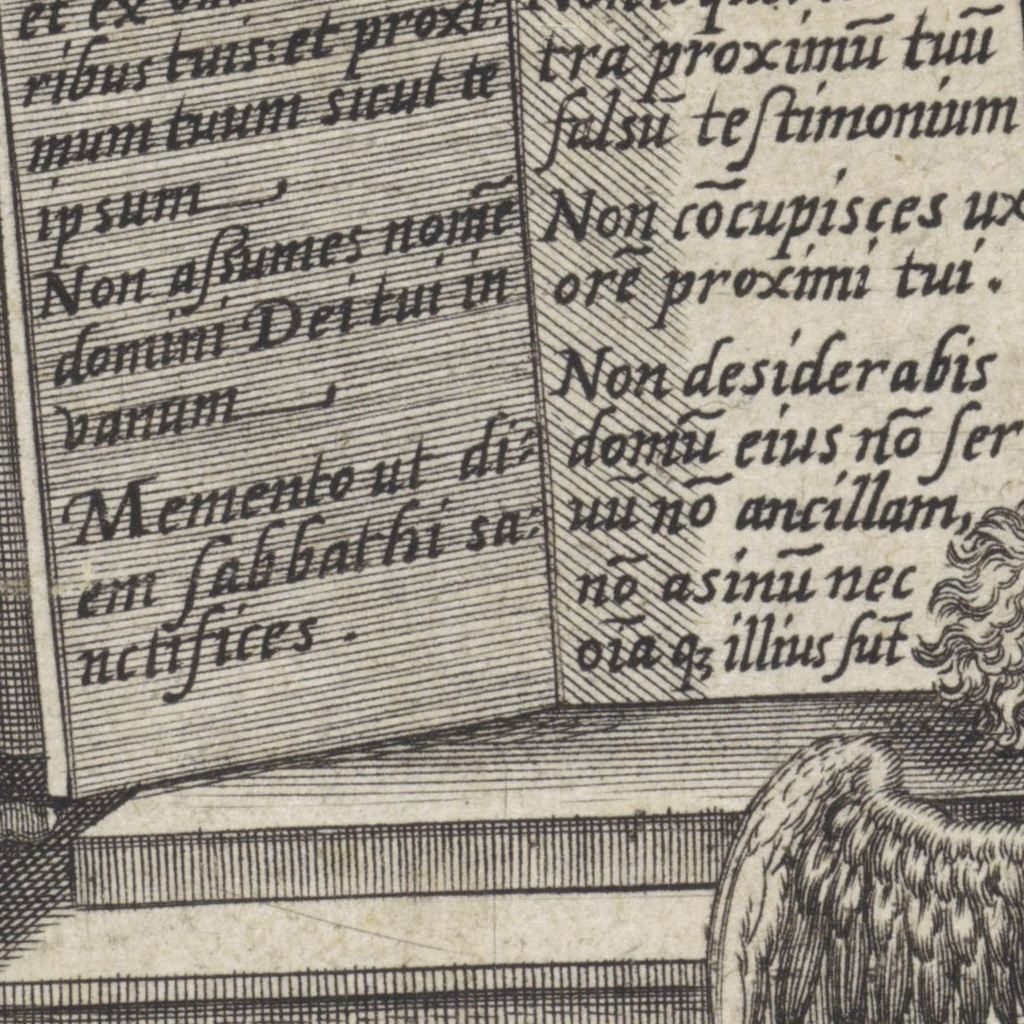 et ex
ribus tuis: et proxi:
mum tuum sicut te
ipsum
Non aſsumes nomē
domini Dei tui in
vanum
Memento ut di:
em ſabbathi sa:
nctifices.
tra proximū tuū
falsū teſtimonium
Non cōcupisces ux
orē proximi tui.
Non desiderabis
domū eius nō ſer
uū nō ancillam,
nō asinū nec
oīa qꝫ illius ſūt